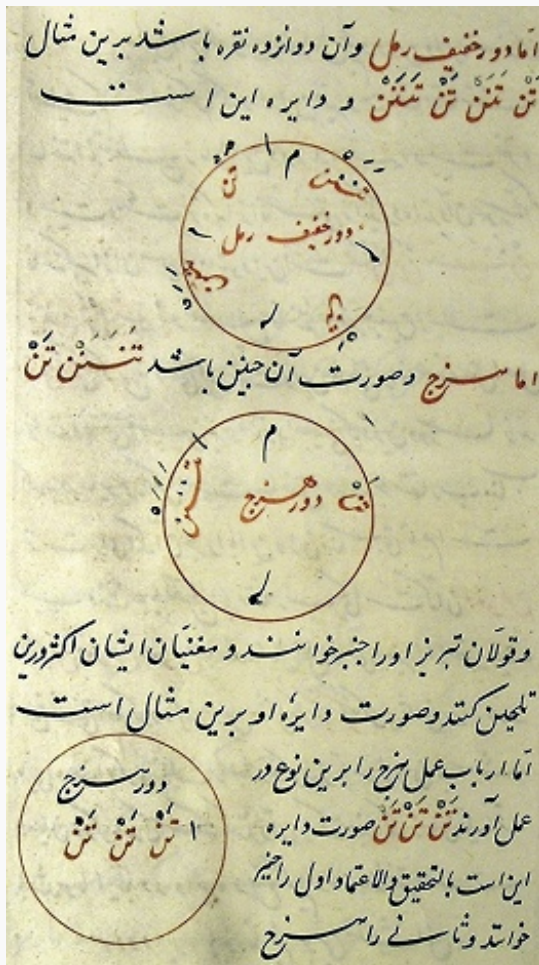 اما دور خفیف رمل وآن دوانزده نقره باشد برین مثال
تَنْ تَنَنْ تَنْ تَنَنَنْ و دایره این است
ا
م
تن
تننن
دور خفیف رمل
اما هزج و صورت آن چنین باشد تَنَنَنْ تَنْ
م
دور هزج
تننن
تن
وقولان تبریز اورا چنبر خوانند و مغنیان ایشان اکثر درین
تلحین کنند و صورت دایره او برین مثال است
اما ارباب عمل هزج را برین نوع در
دور هزج
عمل آورند تَنْ تَنْ تَنْ صورت دایره
ا تَنْ تَنْ تَنْ
این است بالتحقیق والاعتماد اول را چنبر
خوانند و ثانی را هزج